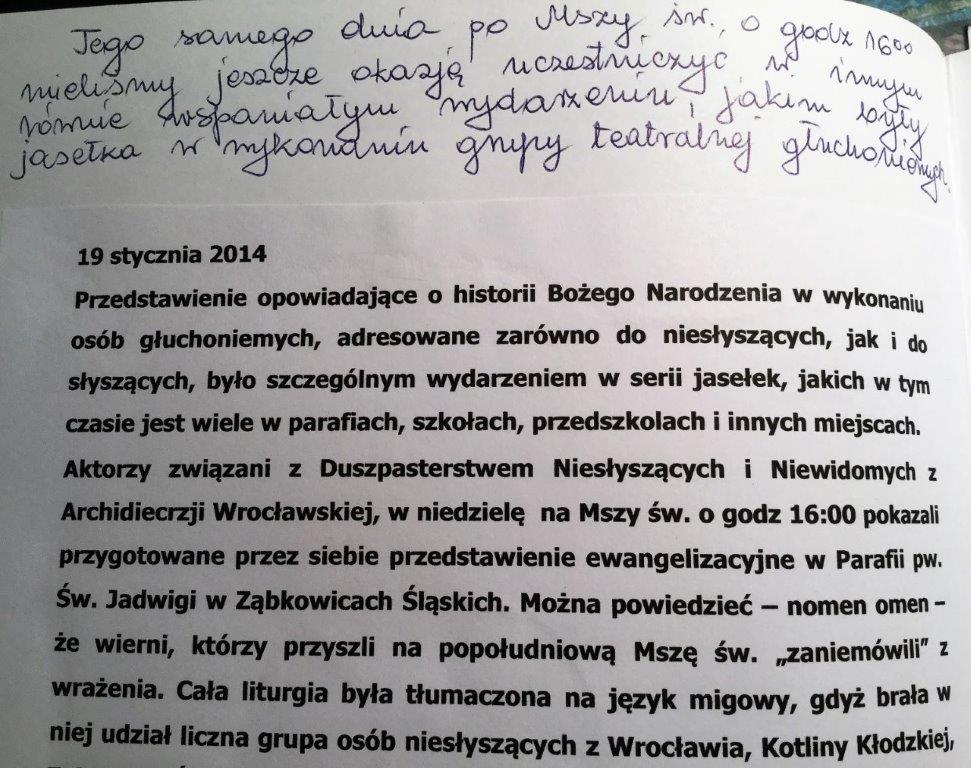 Tego samego dnia po Mszy św. o godz 16⁰⁰
mieliśmy jeszcze okazję uczestniczyć w innym
równie wspaniałym wydarzeniu, jakim były
jasełka w wykonaniu grupy teatralnej głuchoniemych.
19 stycznia 2014
Przedstawienie opowiadające o historii Bożego Narodzenia w wykonaniu
osób głuchoniemych, adresowane zarówno do niesłyszących, jak i do
słyszących, było szczególnym wydarzeniem w serii jasełek, jakich w tym
czasie jest wiele w parafiach, szkołach, przedszkolach i innych miejscach.
Aktorzy związani z Duszpasterstwem Niesłyszących i Niewidomych z
Archidiecrzji Wrocławskiej, w niedzielę na Mszy św. o godz 16:00 pokazali
przygotowane przez siebie przedstawienie ewangelizacyjne w Parafii pw.
Św. Jadwigi w Ząbkowicach Śląskich. Można powiedzieć – nomen omen –
że wierni, którzy przyszli na popołudniową Mszę św. „zaniemówili” z
wrażenia. Cała liturgia była tłumaczona na język migowy, gdyż brała w
niej udział liczna grupa osób niesłyszących z Wrocławia, Kotliny Kłodzkiej,